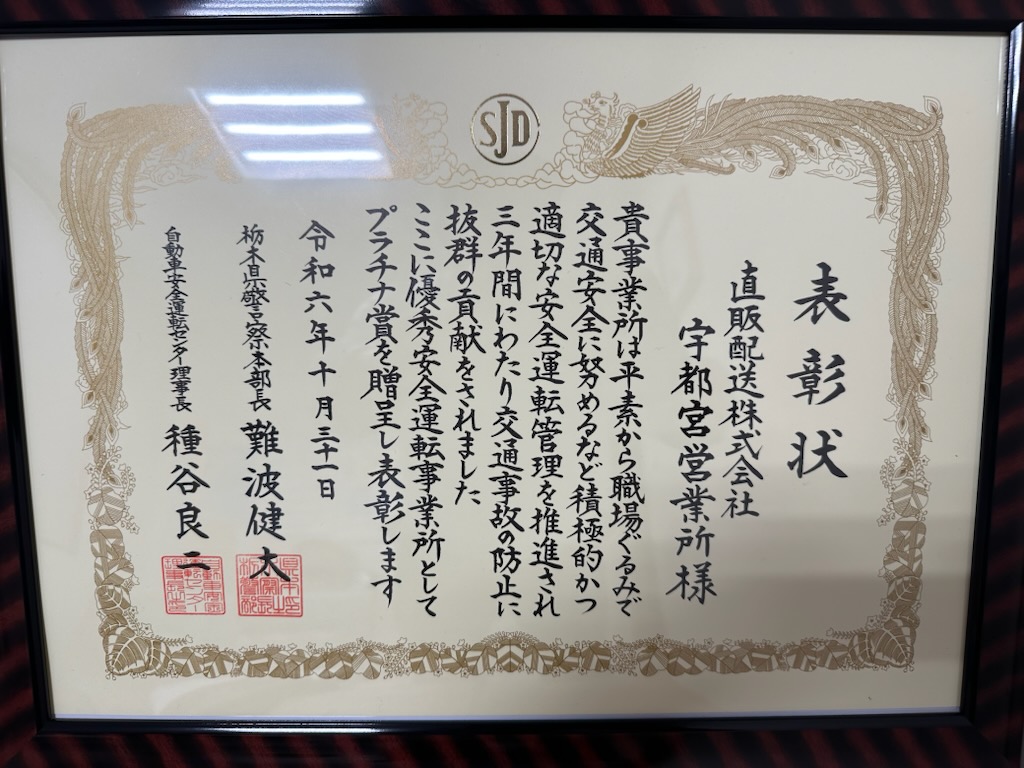 SJD
表彰状
直販配送株式会社
宇都宮営業所様
貴事業所は平素から職場ぐるみで
交通安全に努めるなど積極的かつ
適切な安全運転管理を推進され
三年間にわたり交通事故の防止に
抜群の貢献をされました
ここに優秀安全運転事業所として
プラチナ賞を贈呈し表彰します
令和六年十月三十一日
栃木県警察本部長 難波健太
自動車安全運転センター理事長 種谷良二